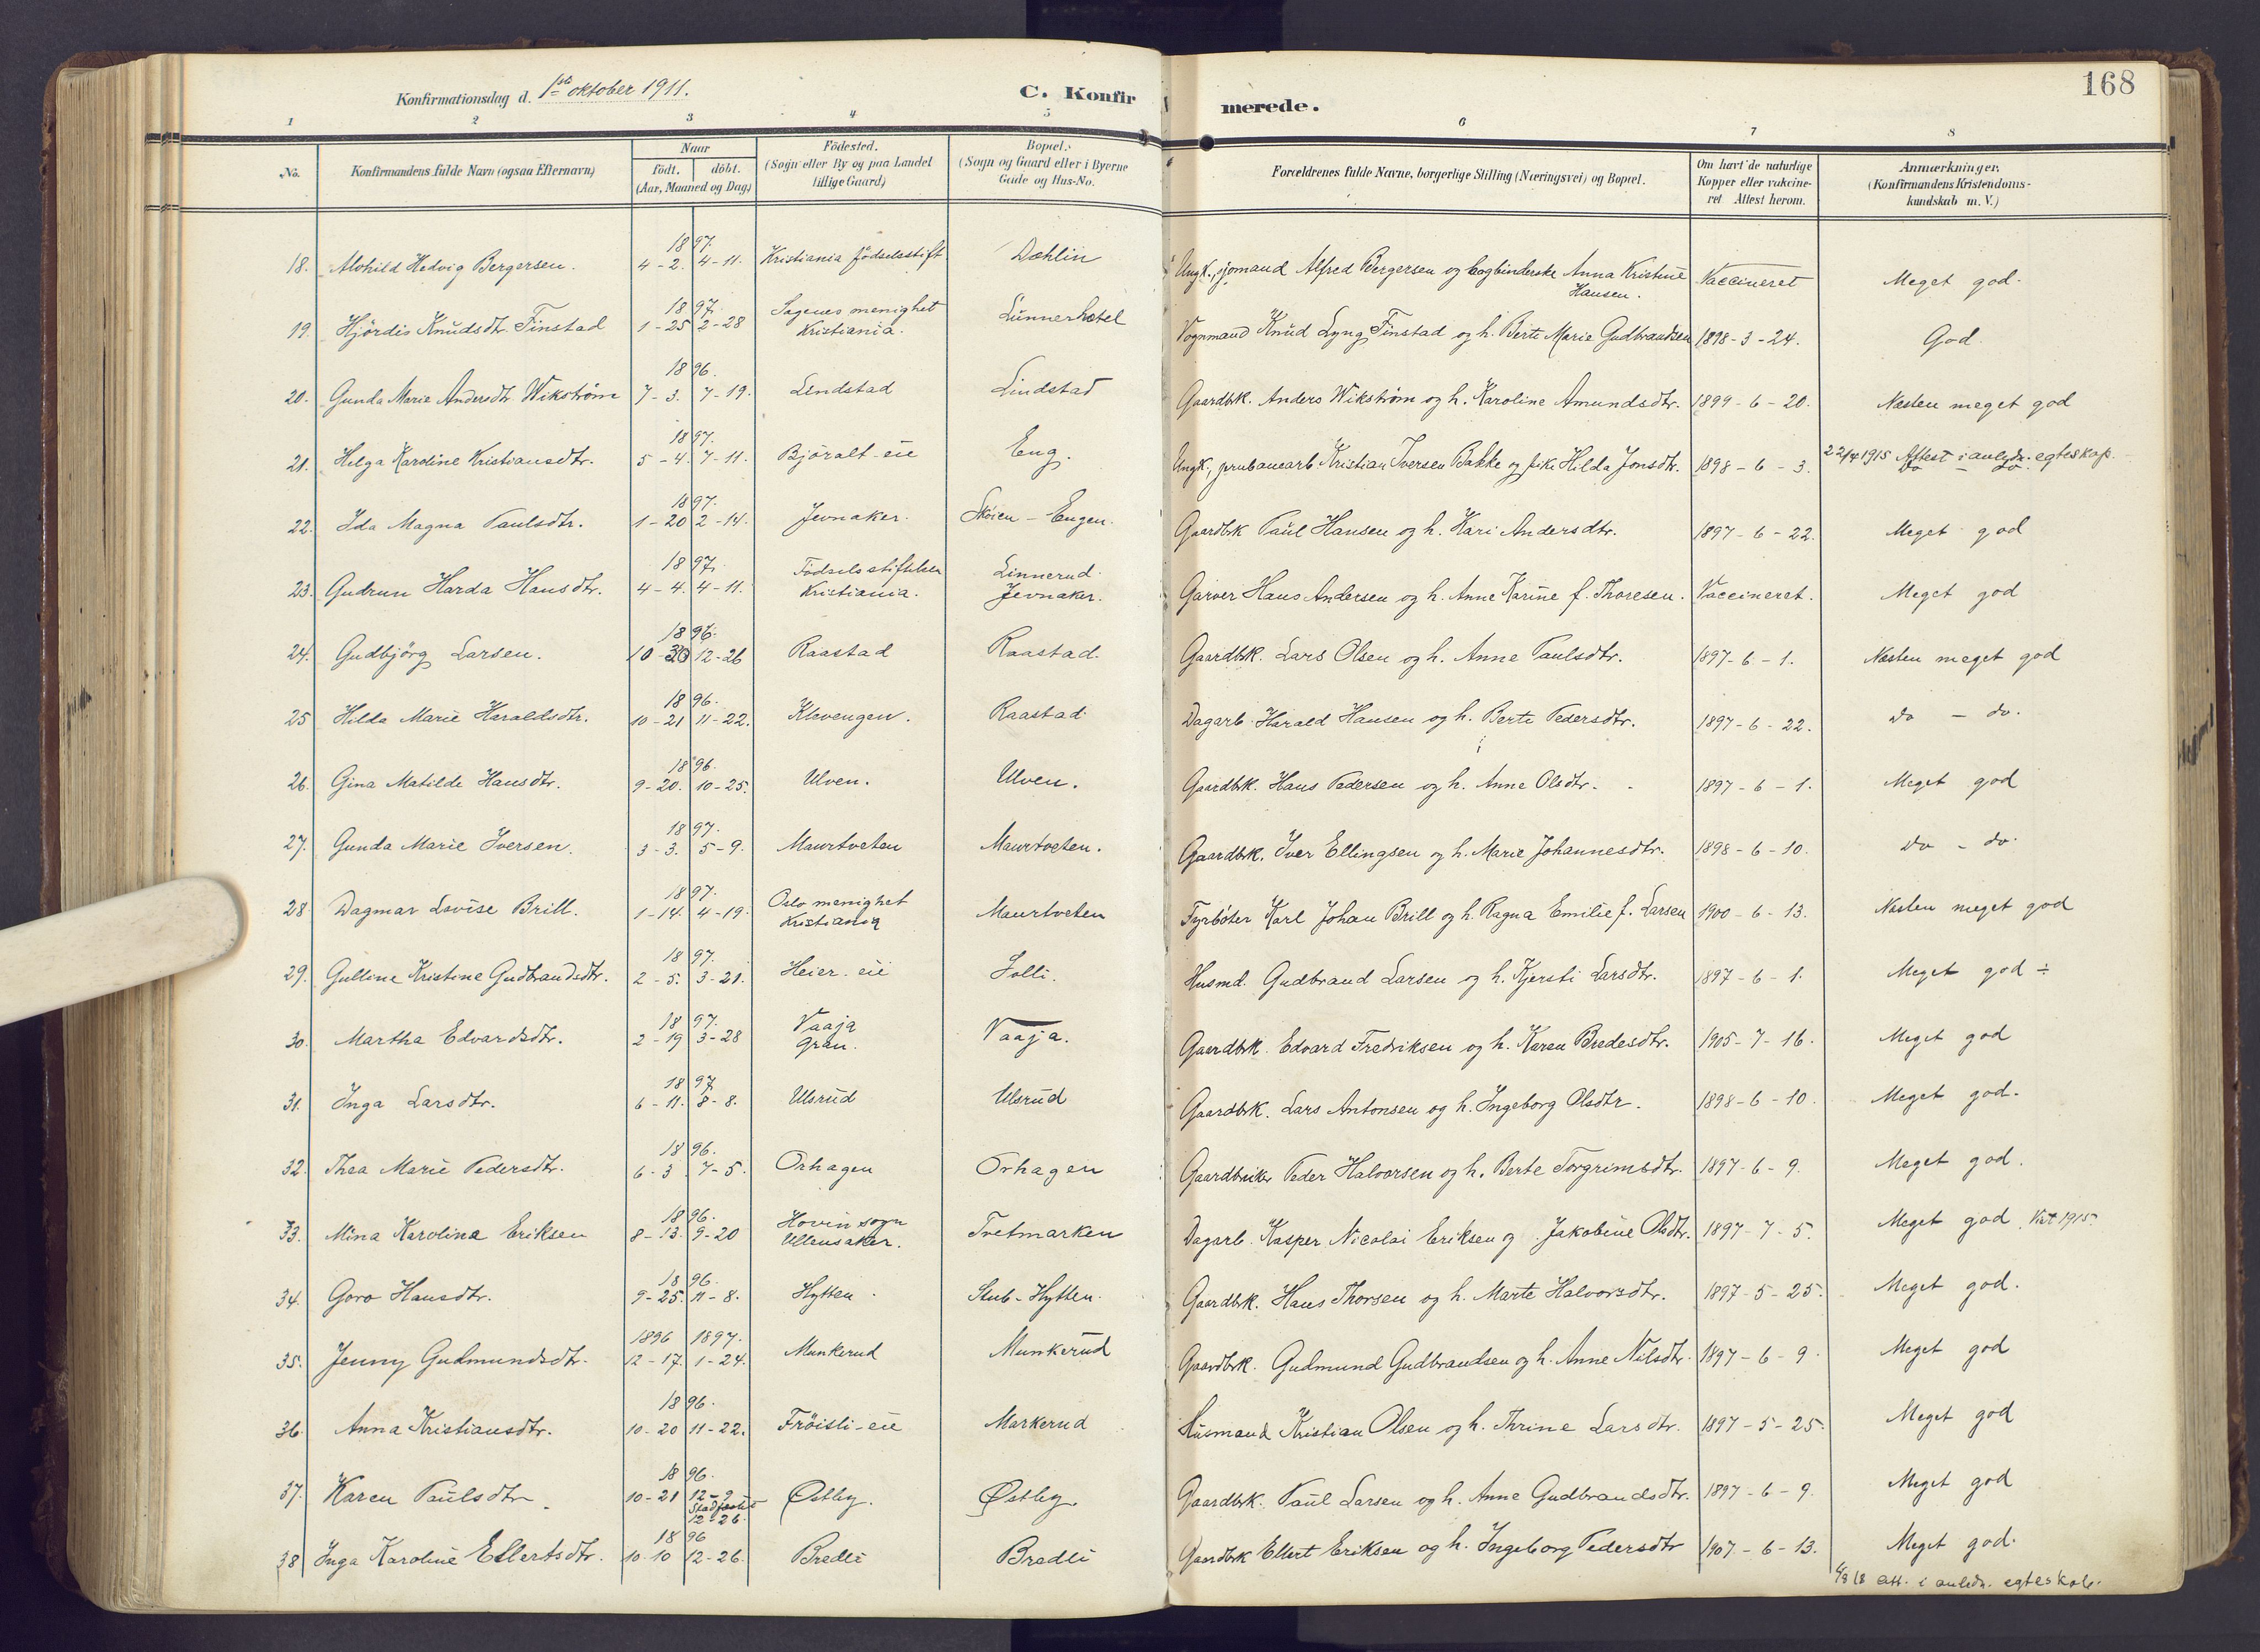 168
Konfirmationsdag d. 1ste oktober 1911. C. Konfirmerede.
1 2 3 4 5 6 7 8
No. Konfirmandens fulde Navn (ogsaa Efternavn) Naar født. døbt. (Aar, Maaned og Dag) Fødested. (Sogn eller By og paa Landet tillige Gaard) Bopæl. (Sogn og Gaard eller i Byerne Gade og Hus-No. Forældrenes fulde Navne, borgerlige Stilling (Næringsvei) og Bopæl. Om havt de naturlige Kopper eller vakcineret Attest herom. Anmærkninger. (Konfirmandens Kristendomskundskab m. V.)
18. Alvhild Hedvig Bergersen. 1897. 4-2. 4-11. Kristiania fødselsstift Dæhlin Ungk., sjømand Alfred Bergersen og bogbinderske Anna Kristine Hansen. Vaccineret Meget god.
19. Hjördis Knudsdtr. Finstad 1897. 1-25 2-28 Sagenes menighet Kristiania. Lunner hotel Vognmand Knud Lyng Finstad og h. Berte Marie Gudbrandsen 1898-3-24. God.
20. Gunda Marie Andersdtr. Wikstrøm 1896. 7-3. 7-19. Lindstad Lindstad Gaardbk. Anders Wikstrøm og h. Karoline Amundsdtr. 1899-6-20. Næsten meget god
21. Helga Karoline Kristiansdtr. 1897. 5-4. 7-11. Björalt-eie Eng. Ungk., grubeanearb. Kristian Iversen Bakke og pike Hilda Jonsdtr. 1898-6-3. 22/4 1915 Attest i anledn. egteskap. do - do.
22. Ida Magna Paulsdtr. 1897. 1-20 2-14. Jevnaker. Skøien-Engen. Gaardbk Paul Hansen og h. Kari Andersdtr. 1897-6-22. Meget god
23. Gudrun Harda Hansdtr. 1897. 4-4. 4-11. Fødselsstiftelsen Kristiania. Linnerud Jevnaker. Garver Hans Andersen og h. Anne Karine f. Thoresen. Vaccineret. Meget god
24. Gudbjörg Larsen. 1896. 10-30 12-26 Raastad Raastad. Gaardbk. Lars Olsen og h. Anne Paulsdtr. 1897-6-1. Næsten meget god
25 Hilda Marie Haraldsdtr. 1896. 10-21 11-22. Klevengen. Raastad Dagarb. Harald Hansen og h. Berte Pedersdtr. 1897-6-22. do - do.
26. Gina Matilde Hansdtr. 1896. 9-20. 10-25. Ulven. Ulven. Gaardbk. Hans Pedersen og h. Anne Olsdtr. 1897-6-1. Meget god
27. Gunda Marie Iversen. 1897. 3-3. 5-9. Maurtveten Maurtveten. Gaardbk. Iver Ellingsen og h. Marie Johannesdtr. 1898-6-10. do - do.
28. Dagmar Lovise Brill. 1897. 1-14. 4-19. Oslo menighet Kristiania Maurtveten Fyrbøter Karl Johan Brill og h. Ragna Emilie f. Larsen 1900-6-13. Næsten meget god
29. Gulline Kristine Gudbrandsdtr. 1897. 2-5. 3-21. Heier-eie Jolli. Husmd. Gudbrand Larsen og h. Kjersti Larsdtr. 1897-6-1. Meget god ÷
30. Martha Edvardsdtr. 1897. 2-19 3-28 Vaaja Gran. Vaaja. Gaardbk. Edvard Fredriksen og h. Karen Bredesdtr. 1905-7-16. Meget god
31. Inga Larsdtr. 1897. 6-11. 8-8. Ulsrud Ulsrud Gaardbk. Lars Antonsen og h. Ingeborg Olsdtr. 1898-6-10. Meget god.
32. Thea Marie Pedersdtr. 1896. 6-3 7-5. Orhagen Orhagen Gaardbruker Peder Halvorsen og h. Berte Torgrimsdtr. 1897-6-9. Meget god.
33. Mina Karolina Eriksen 1896. 8-13. 9-20 Hovin sogn Ullensaker. Tvetmarken Dagarb. Kasper Nicolai Eriksen og Jakobine Olsdtr. 1897-7-5. Meget god. Vit 1915.
34. Goro Hansdtr. 1896. 9-25. 11-8. Hytten. Stub-Hytten. Gaardbk. Hans Thorsen og h. Marte Halvorsdtr. 1897-5-25. Meget god.
35. Jenny Gudmundsdtr. 1896 1897. 12-17. 1-24. Munkerud Munkerud Gaardbrk. Gudmund Gudbrandsen og h. Anne Nilsdtr. 1897-6-9. Meget god
36. Anna Kristiansdtr. 1896. 10-20 11-22. Fröisli-eie Markerud Husmand Kristian Olsen og h. Thrine Larsdtr. 1897-5-25. Meget god
37. Karen Paulsdtr. 1896. 10-21 12-9 Stadfæstet 12-26. Østby. Østby. Gaardbk. Paul Larsen og h. Anne Gudbrandsdtr. 1897-6-9. Meget god
38 Inga Karoline Ellertsdtr. 1896 10-10 12-26. Bredli Bredli Gaardbk Ellert Eriksen og h. Ingeborg Pedersdtr 1907-6-13. Meget god.
18 att. i anledn. egteskab.